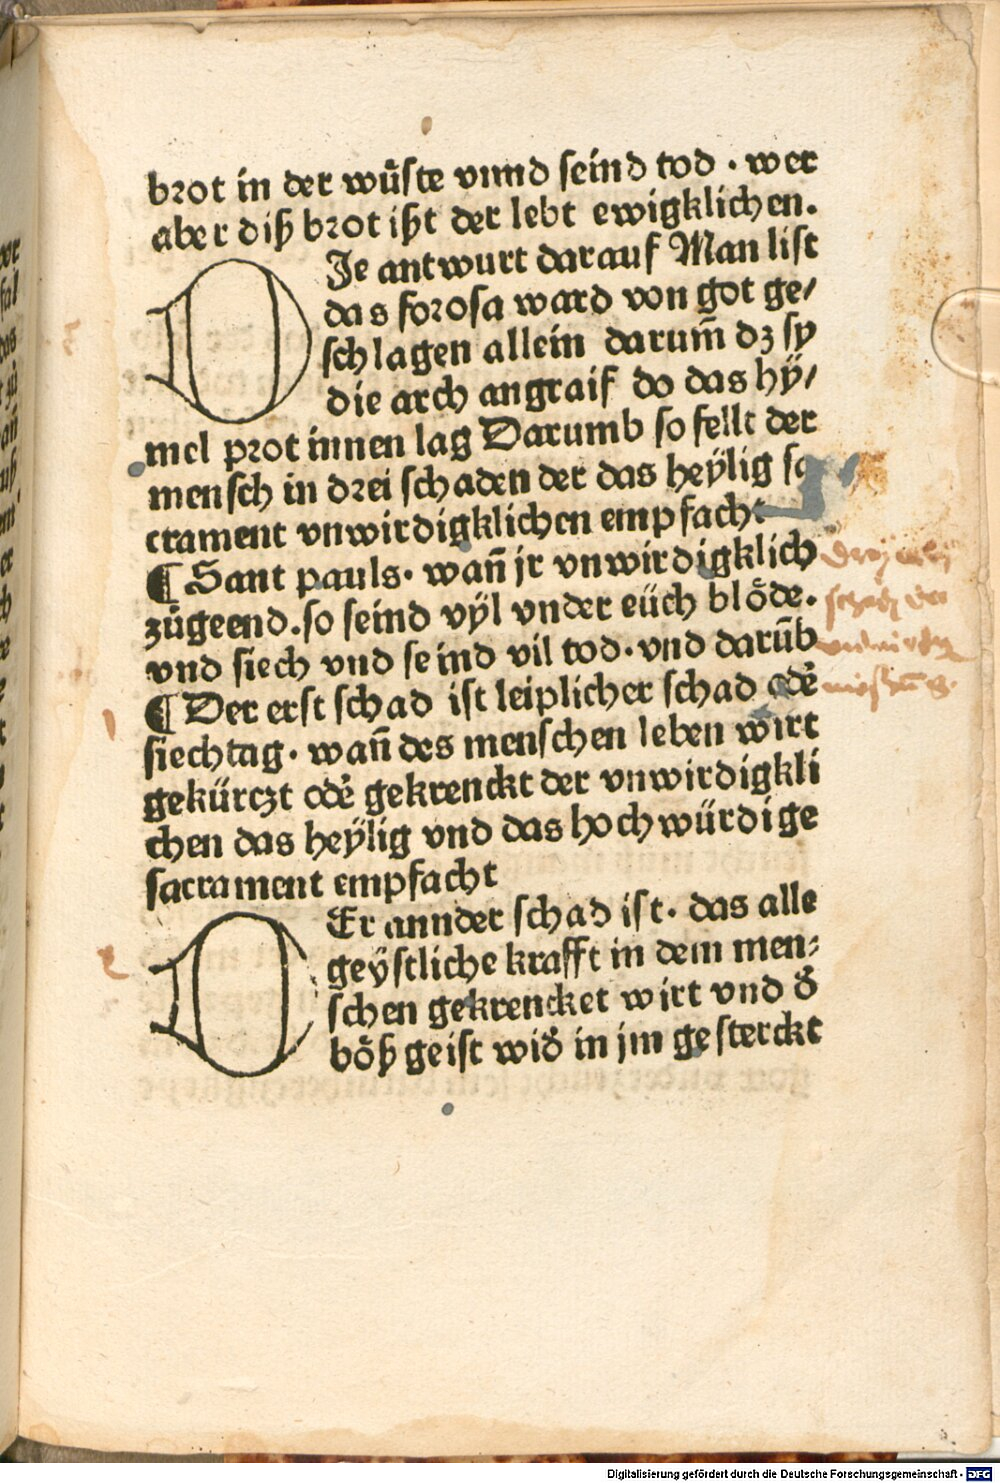 brot in der wu̇ste vnnd seind tod . wer
aber diß brot ißt der lebt ewigklichen.
DJe antwurt darauf Man list
das forosa ward von got ge/
schlagen allein darum̄ dz sy
die arch angraif do das hÿ/
mel prot innen lag Darumb so fellt der
mensch in drei schaden der das heÿlig sa
crament vnwirdigklichen empfacht
¶ Sant pauls. wan̄ jr vnwirdigklich
zu̇geend. so seind vÿl vnder eüch blöde.
vnd siech vnd seind vil tod. vnd daru̅b
¶ Der erst schad ist leiplicher schad oder̾
siechtag. wan̄ des menschen leben wirt
gekürczt oder̾ gekrenckt der vnwirdigkli
chen das heÿlig vnd das hochwürdige
sacrament empfacht
DEr annder schad ist. das alle
geÿstliche krafft in dem men⸗
schen gekrencket wirt vnd d̾
böß geist wid̾ in jm gesterckt
Digitalisierung gefördert durch die Deutsche Forschungsgemeinschaft - DFG